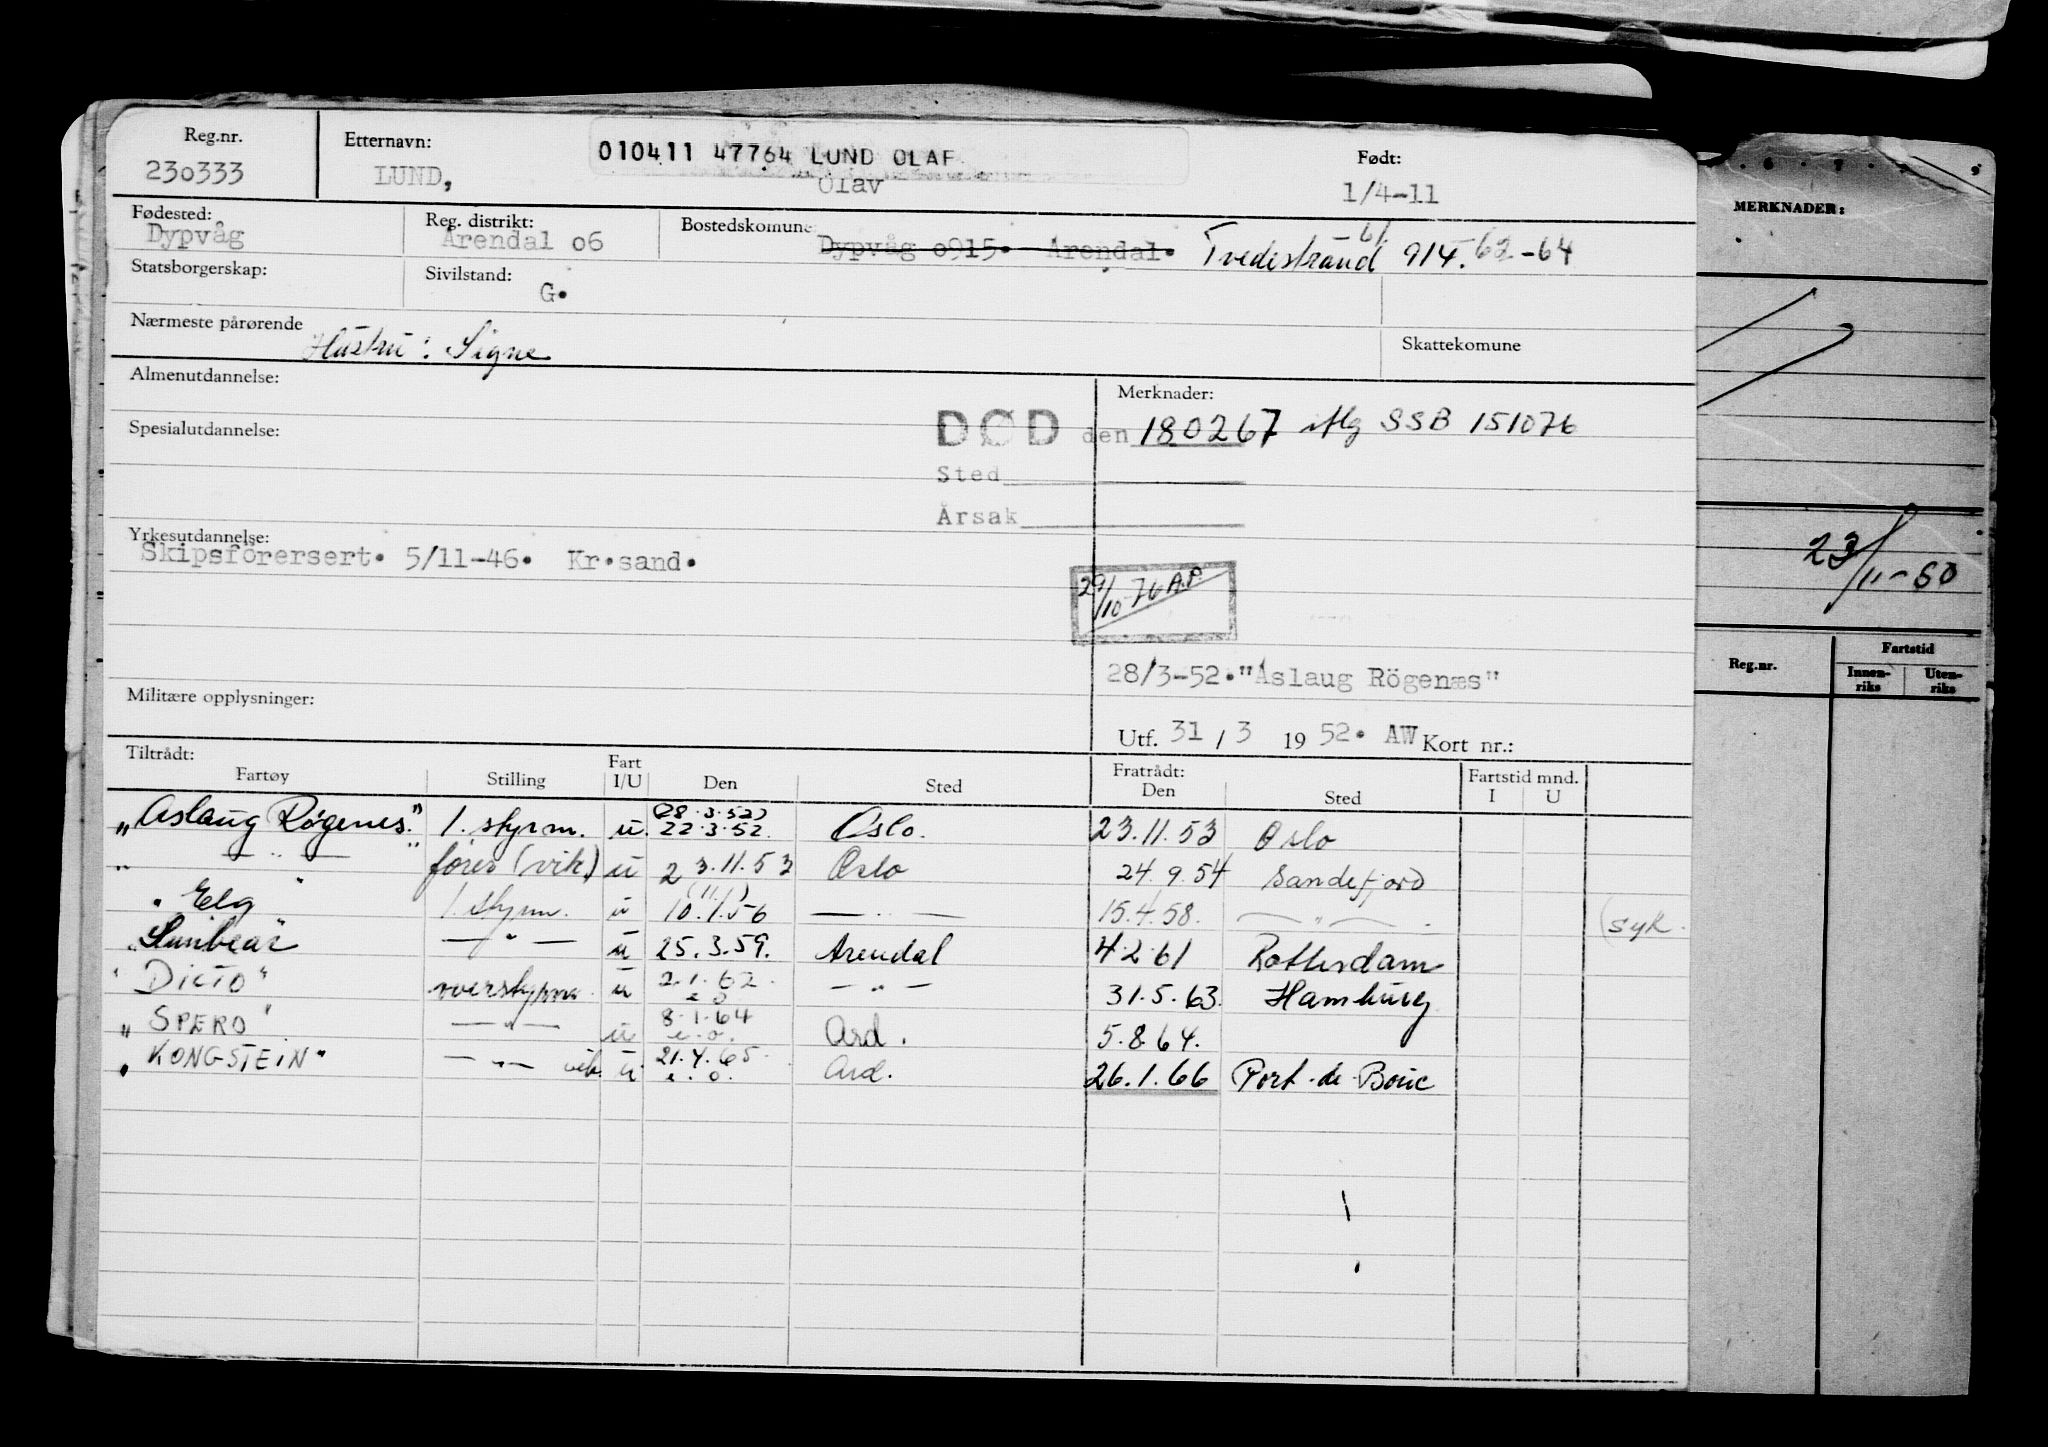 Reg.nr. Etternavn: 010411 47764 LUND OLAF Født:
230333 LUND, Olav 1/4-11
Fødested: Reg. distrikt: Bostedskommune:
Dypvåg Arendal 06 Dypvåg 0915. Arendal. Tvedestrand 914. 61 62-64
Statsborgerskap: Sivilstand:
G.
Nærmeste pårørende Skattekomune
Hustru: Signe
Almenutdannelse: Merknader:
Spesialutdannelse: DØD den 180267 iflg SSB 151076
Sted
Årsak
Yrkesutdannelse:
Skipsförersert. 5/11-46. Kr.sand.
29/10-76 A.P.
28/3-52."Aslaug Rögenæs"
Militære opplysninger:
Utf. 31 / 3 19 52. AW Kort nr.:
Tiltrådt: Fart Fratrådt: Fartstid mnd.
Fartøy Stilling I/U Den Sted Den Sted I U
"Aslaug Rögenes." 1. styrm. u. (28.3.52) 22.3.52. Oslo. 23.11.53 Oslo
" — " — " fører (vik.) u 23.11.53 Oslo 24.9.54 Sandefjord
" Elg " 1. styrm. u (11/1) 10.1.56 — " — 15.4.58. — " — (syk.
"Sunbear" — " — u 25.3.59. Arendal 4.2.61 Rotterdam
"DICTO" overstyrm. u 2.1.62. e.o — " — 31.5.63. Hamburg
"SPERO" — " — u 8.1.64 e.o. Ard. 5.8.64.
"KONGSTEIN" — " — vik. u 21.4.65. e.o. Ard. 26.1.66 Port-de-Bouc
6 7
MERKNADER:
23/11-50
Reg.nr. Fartstid
Innenriks Utenriks